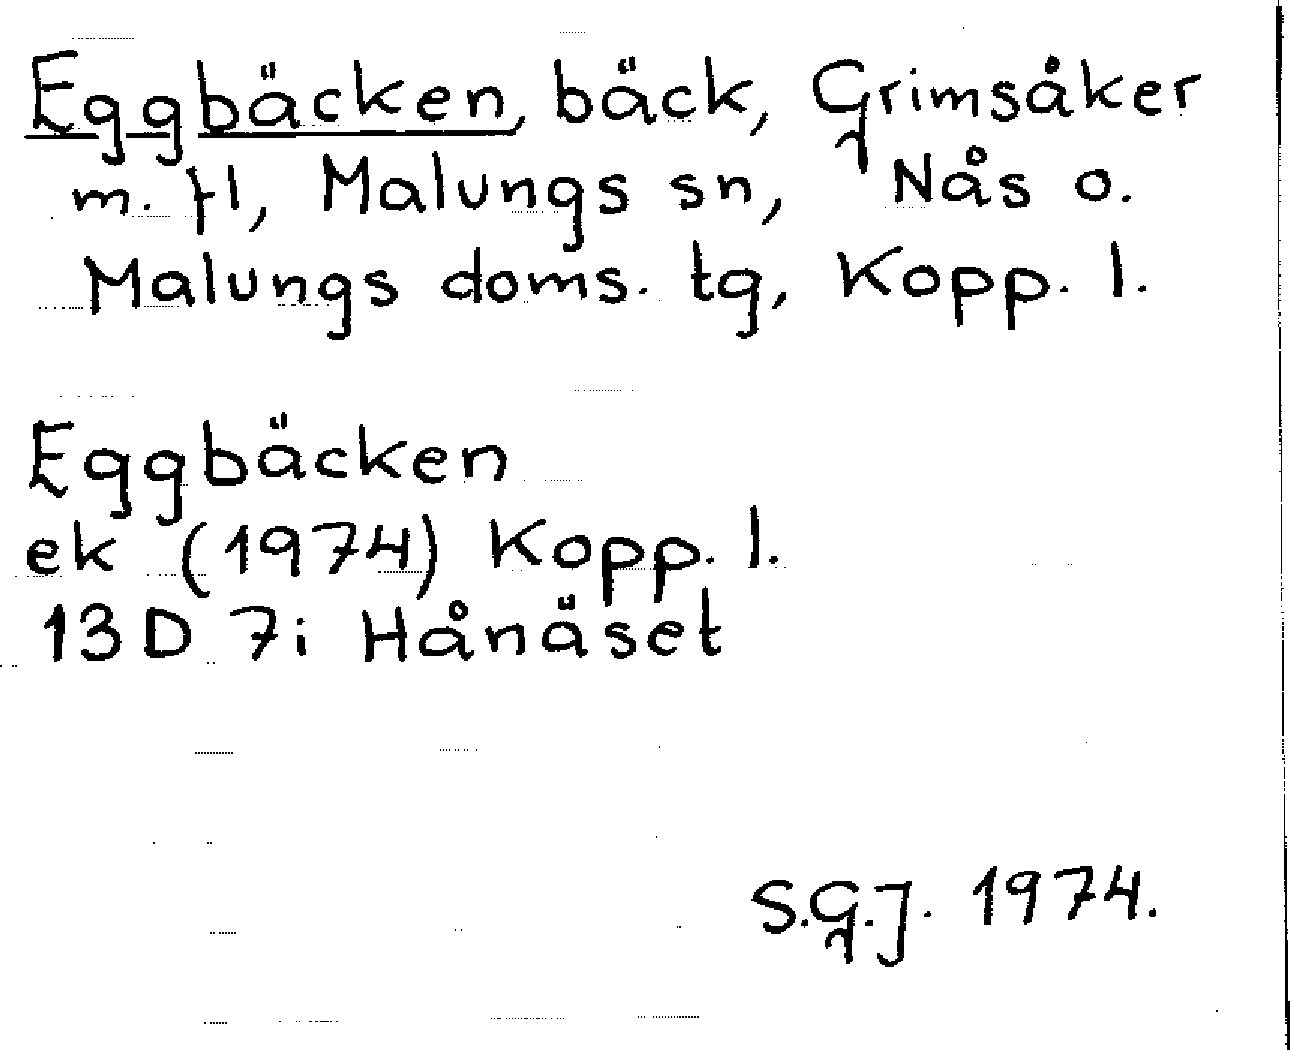 Eggbäcken, bäck, Grimsåker
m. fl, Malungs sn, Nås o.
Malungs doms. tg, Kopp. l.
Eggbäcken
ek (1974) Kopp. l.
13 D 7i Hånäset
S.G.J. 1974.